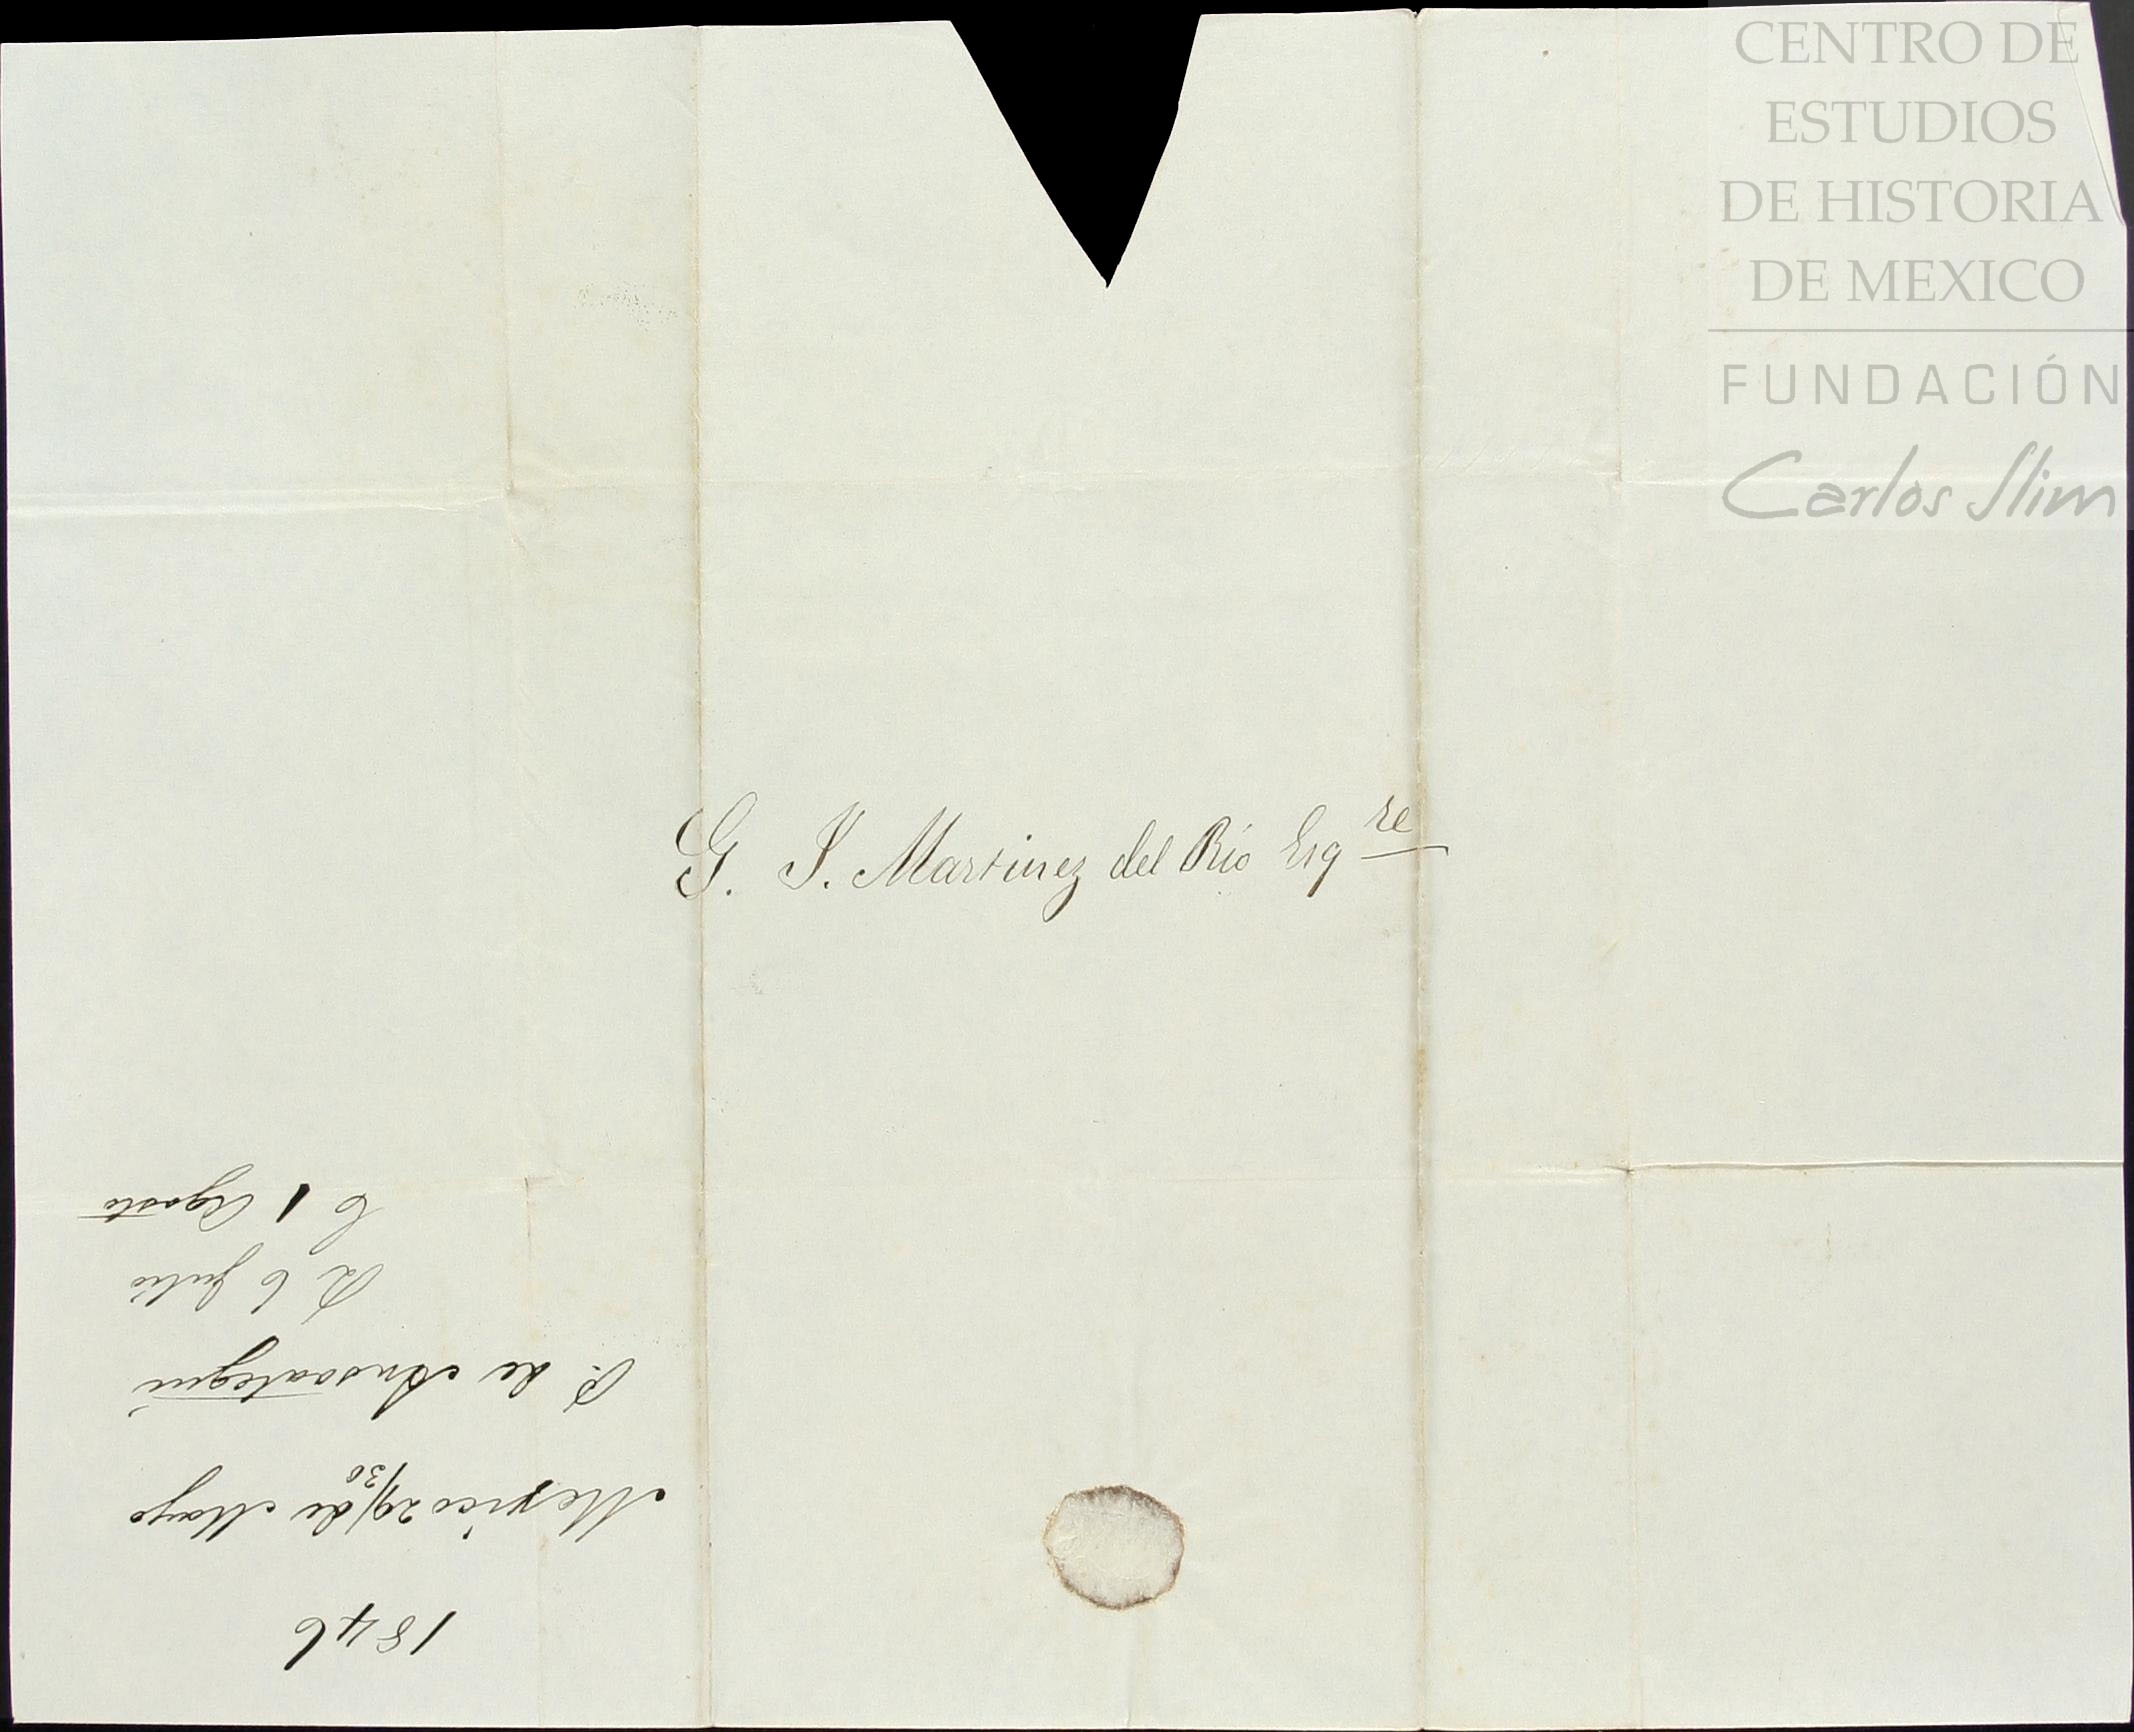 CENTRO DE
ESTUDIOS
DE HISTORIA
DE MEXICO
FUNDACIÓN
Carlos Slim
G. J. Martinez del Rio Esqre
1846
Mexico 29/30 de Mayo
P. de Ansoategui
R 6 Julio
C 1 Agosto